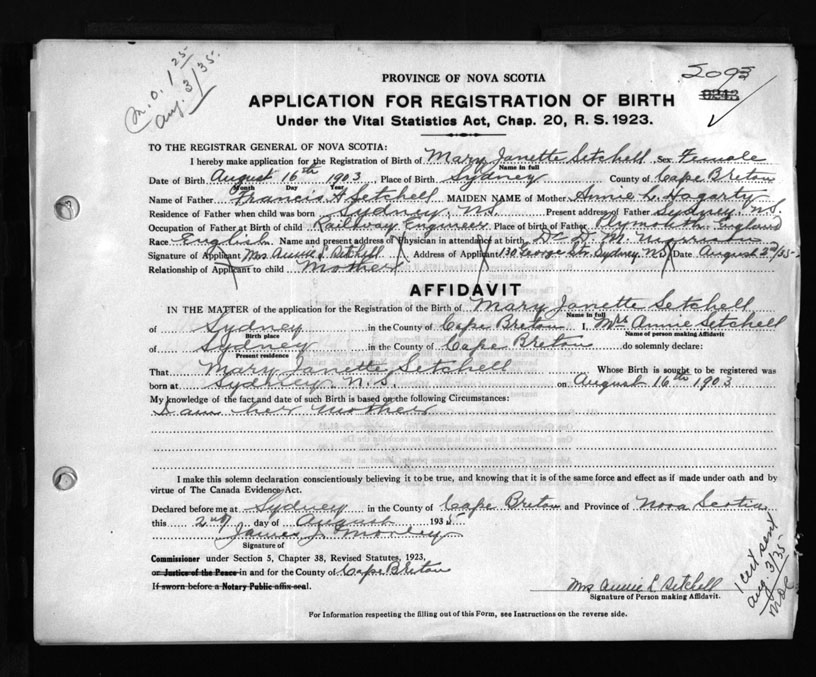 M.O. 1 25
Aug. 3/35
5093
0243
PROVINCE OF NOVA SCOTIA
APPLICATION FOR REGISTRATION OF BIRTH
Under the Vital Statistics Act, Chap. 20, R. S. 1923.
TO THE REGISTRAR GENERAL OF NOVA SCOTIA:
I hereby make application for the Registration of Birth of Mary Janette Setchell Sex Female
Name in full
Date of Birth August 16th 1903 Place of Birth Sydney County of Cape Breton
Month Day Year
Name of Father Francis A Setchell MAIDEN NAME of Mother Annie L. Hagarty
Residence of Father when child was born Sydney, N.S. Present address of Father Sydney, N.S.
Occupation of Father at Birth of child Railway Engineer Place of birth of Father Plymouth, England
Race English Name and present address of Physician in attendance at birth Dr. D. M.
Signature of Applicant Mrs Annie L Setchell Address of Applicant 130 George Str, Sydney, NS Date August 2nd/35
Relationship of Applicant to child Mother
AFFIDAVIT
IN THE MATTER of the application for the Registration of the Birth of Mary Janette Setchell
Name in full
of Sydney in the County of Cape Breton I, Mrs Annie Setchell
Birth place Name of person making Affidavit
of Sydney in the County of Cape Breton do solemnly declare:
Present residence
That Mary Janette Setchell Whose Birth is sought to be registered was
born at Sydney, N.S. on August 16th 1903
My knowledge of the fact and date of such Birth is based on the following Circumstances:
I am her mother
I make this solemn declaration conscientiously believing it to be true, and knowing that it is of the same force and effect as if made under oath and by
virtue of The Canada Evidence Act.
Declared before me at Sydney in the County of Cape Breton and Province of Nova Scotia
this 2nd day of August 1935
James J. Morley
Signature of
Commissioner under Section 5, Chapter 38, Revised Statutes, 1923,
or Justice of the Peace in and for the County of Cape Breton
If sworn before a Notary Public affix seal.
Mrs Annie L Setchell
Signature of Person making Affidavit.
1 cert sent
Aug 3/35
For Information respecting the filling out of this Form, see Instructions on the reverse side.